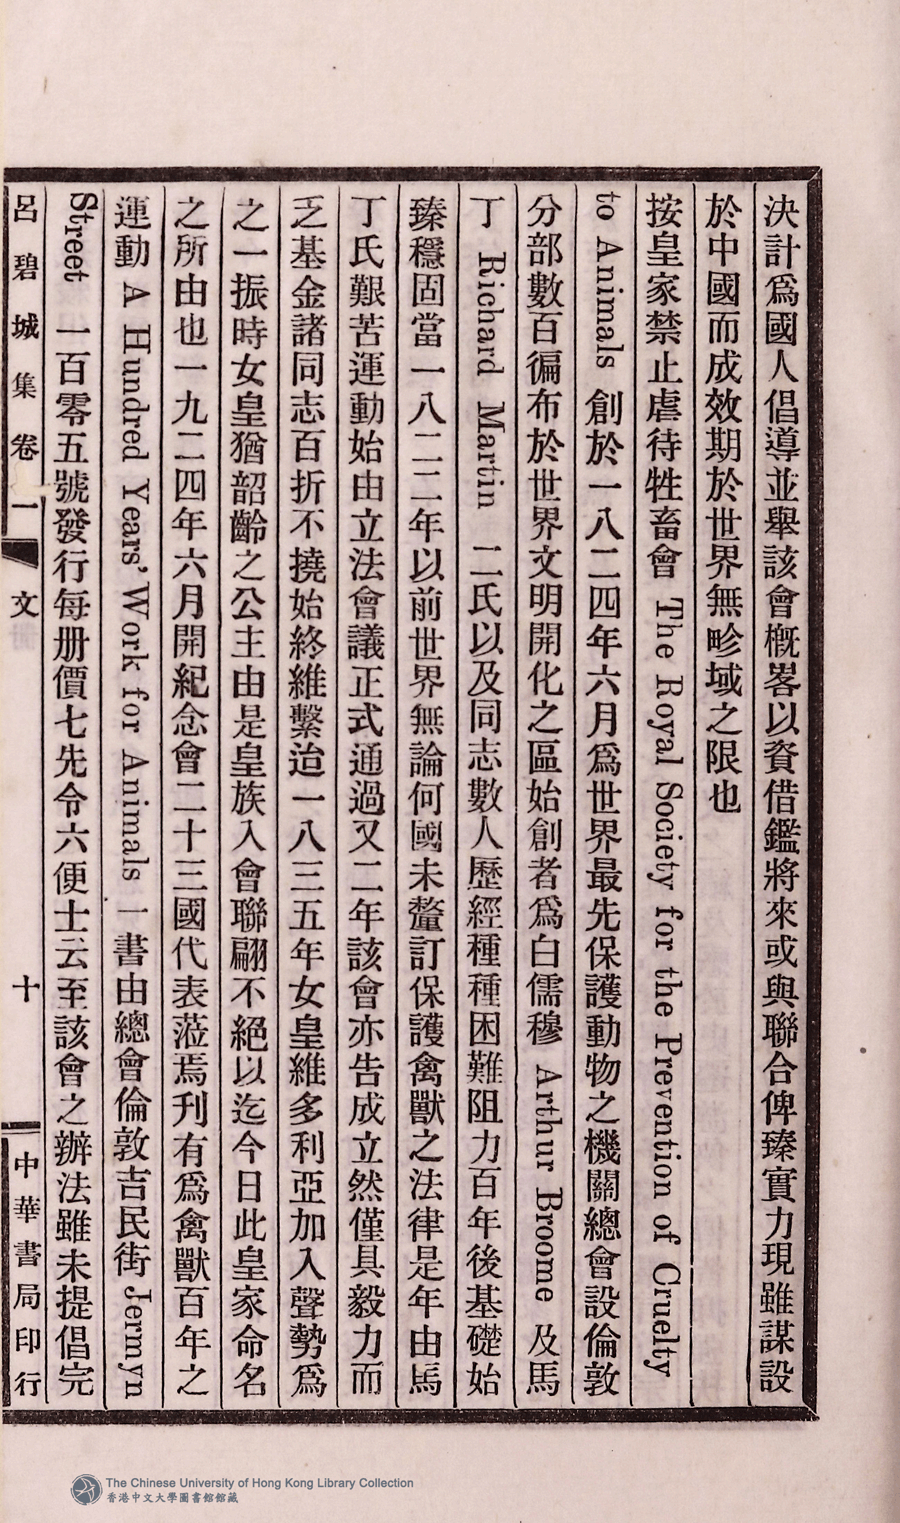 決計爲國人倡導並舉該會槪畧以資借鑑將來或與聯合俾臻實力現雖謀設
於中國而成效期於世界無畛域之限也
按皇家禁止虐待牲畜會 The Royal Society for the Prevention of Cruelty
to Animals 創於一八二四年六月爲世界最先保護動物之機關總會設倫敦
分部數百徧布於世界文明開化之區始創者爲白儒穆 Arthur Broome 及馬
丁 Richard Martin 二氏以及同志數人歷經種種困難阻力百年後基礎始
臻穩固當一八二二年以前世界無論何國未釐訂保護禽獸之法律是年由馬
丁氏艱苦運動始由立法會議正式通過又二年該會亦告成立然僅具毅力而
乏基金諸同志百折不撓始終維繫迨一八三五年女皇維多利亞加入聲勢爲
之一振時女皇猶韶齡之公主由是皇族入會聯翩不絕以迄今日此皇家命名
之所由也一九二四年六月開紀念會二十三國代表蒞焉刋有爲禽獸百年之
運動 A Hundred Years' Work for Animals 一書由總會倫敦吉民街 Jermyn
Street 一百零五號發行每册價七先令六便士云至該會之辦法雖未提倡完
呂碧城集卷一 文 十 中華書局印行
The Chinese University of Hong Kong Library Collection
香港中文大學圖書館館藏